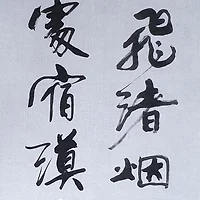 飛渚烟
處宿漠